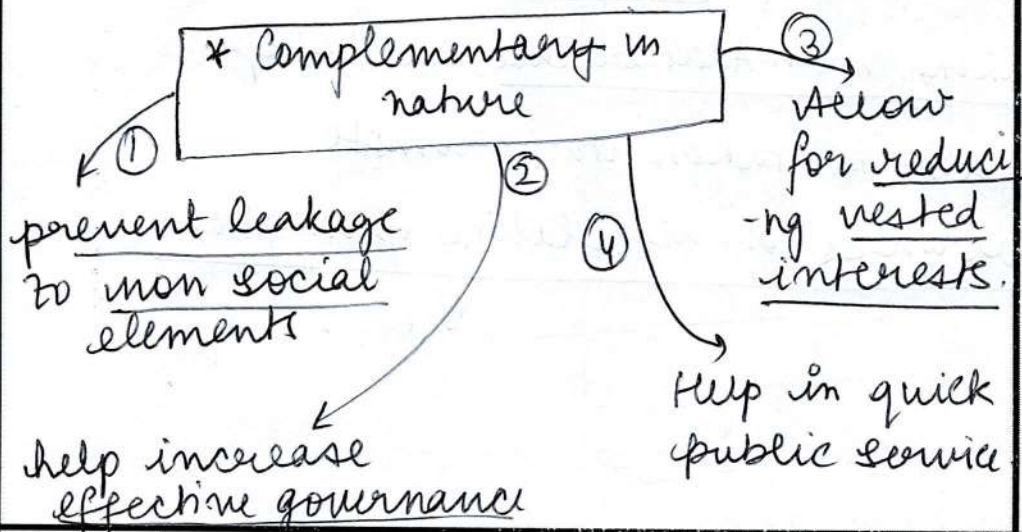 * Complementary in
nature
①
prevent leakage
to non social
elements
②
help increase
effective governance
③
Allow
for reduci
-ng vested
interests.
④
Help in quick
public service